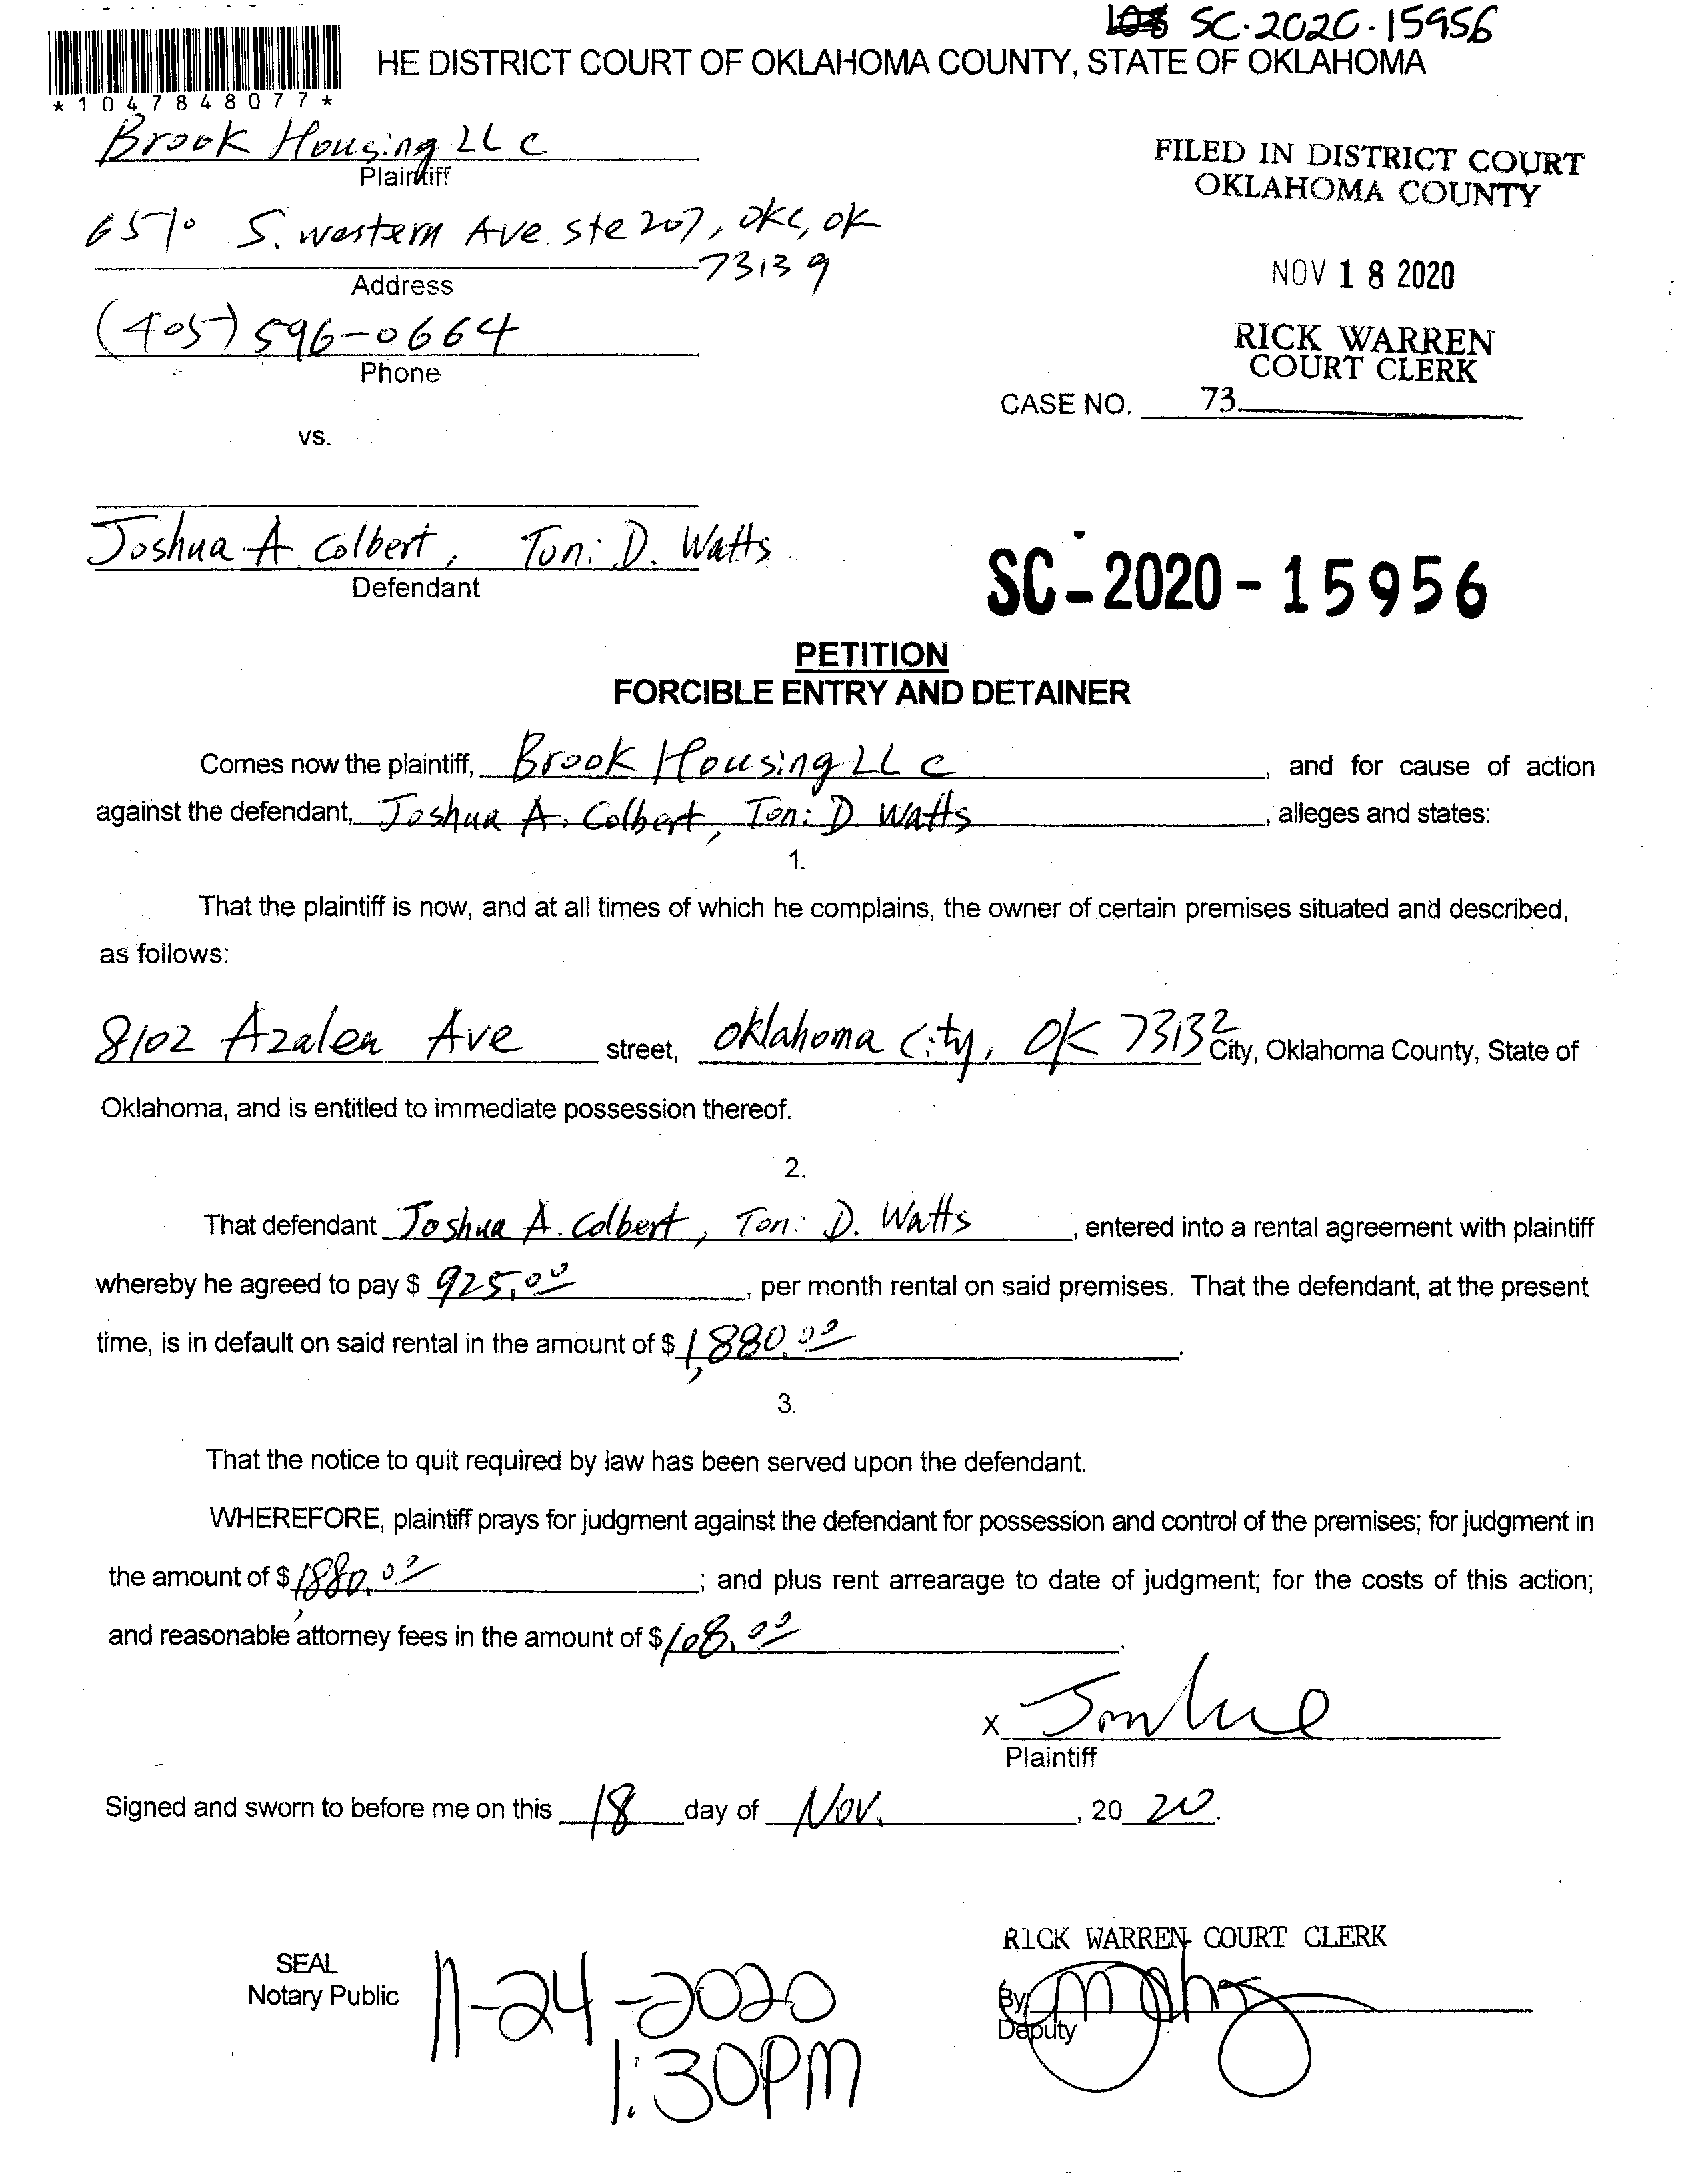 SC-2020-15956
HE DISTRICT COURT OF OKLAHOMA COUNTY, STATE OF OKLAHOMA
*1047848077*
Brook Housing LLC
Plaintiff
FILED IN DISTRICT COURT
OKLAHOMA COUNTY
6570 S. western Ave. ste 207, OKC, OK
73139
Address
NOV 18 2020
(405) 596-0664
Phone
RICK WARREN
COURT CLERK
CASE NO. 73
vs.
Joshua A Colbert, Toni D. Watts
Defendant
SC-2020-15956
PETITION
FORCIBLE ENTRY AND DETAINER
Comes now the plaintiff, Brook Housing LLC, and for cause of action
against the defendant, Joshua A. Colbert, Toni D Watts, alleges and states:
1.
That the plaintiff is now, and at all times of which he complains, the owner of certain premises situated and described,
as follows:
8102 Azalea Ave street, Oklahoma City, OK 73132 City, Oklahoma County, State of
Oklahoma, and is entitled to immediate possession thereof.
2.
That defendant Joshua A. Colbert, Toni D. Watts, entered into a rental agreement with plaintiff
whereby he agreed to pay $ 925.00, per month rental on said premises. That the defendant, at the present
time, is in default on said rental in the amount of $ 1,880.00.
3.
That the notice to quit required by law has been served upon the defendant.
WHEREFORE, plaintiff prays for judgment against the defendant for possession and control of the premises; for judgment in
the amount of $ 1,880.00; and plus rent arrearage to date of judgment; for the costs of this action;
and reasonable attorney fees in the amount of $ 108.00.
x
Plaintiff
Signed and sworn to before me on this 18 day of Nov., 20 20.
RICK WARREN COURT CLERK
SEAL
Notary Public
11-24-2020
By
Deputy
1:30PM